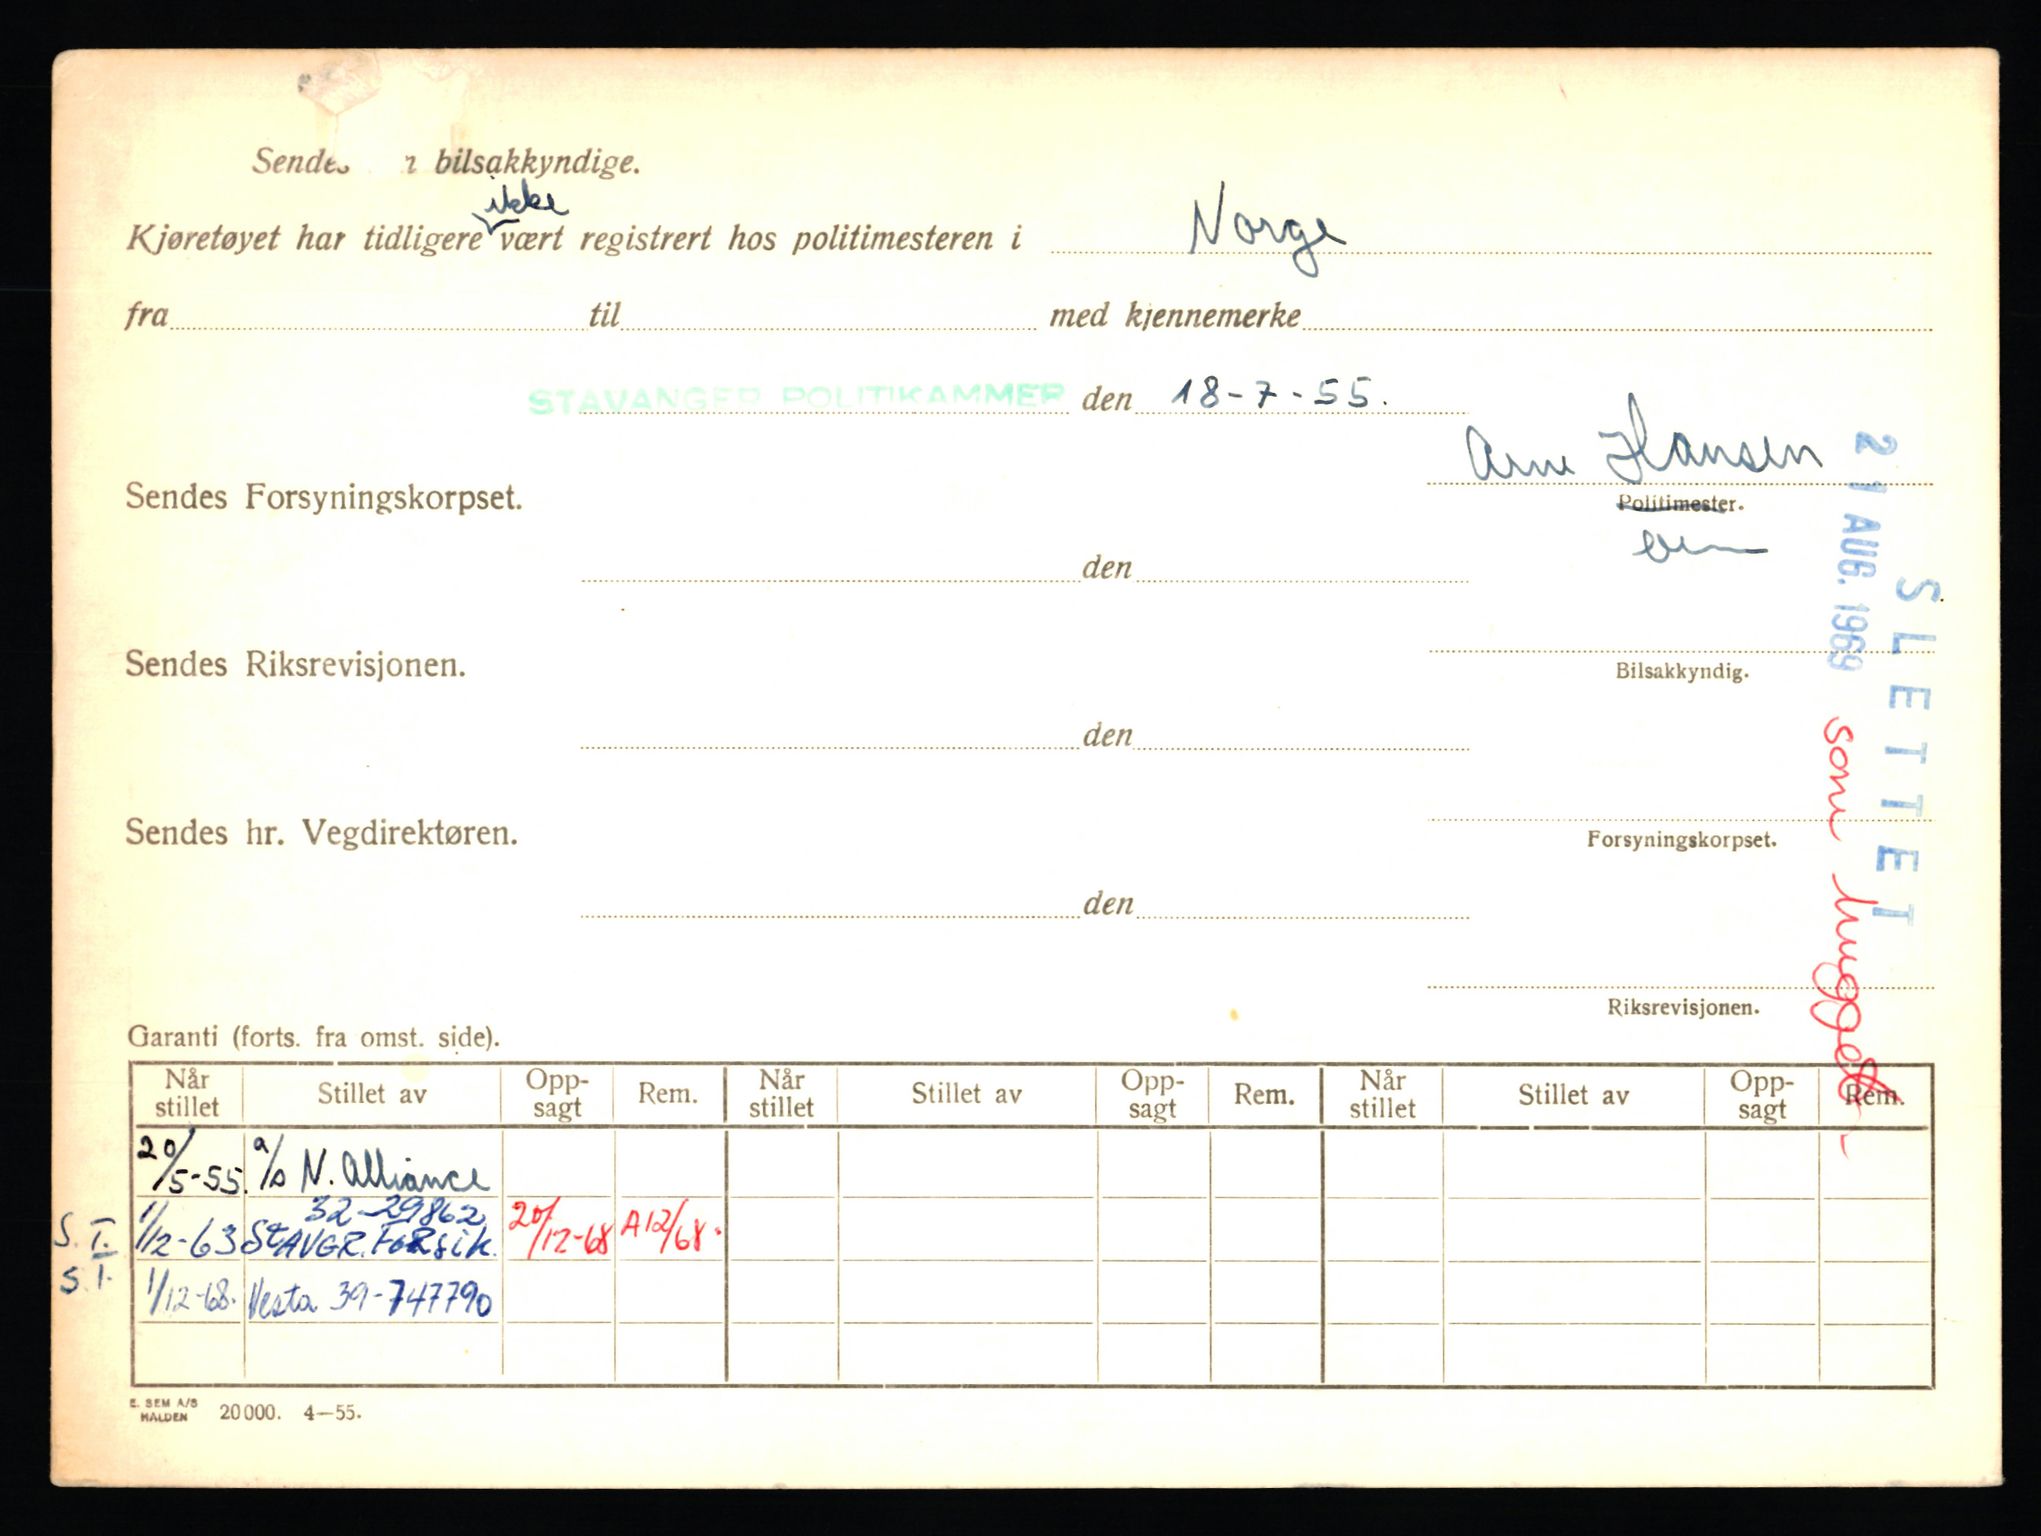 Sendes n bilsakkyndige.
ikke
Kjøretøyet har tidligere vært registrert hos politimesteren i Norge
fra til med kjennemerke
STAVANGER POLITIKAMMER den 18-7-55.
Arne Hansen
Sendes Forsyningskorpset.
Politimester.
den
Sendes Riksrevisjonen.
Bilsakkyndig.
den
Sendes hr. Vegdirektøren.
Forsyningskorpset.
den
Riksrevisjonen.
21 AUG. 1969
SLETTET
som hugget
Garanti (forts. fra omst. side).
Når stillet Stillet av Opp-sagt Rem. Når stillet Stillet av Opp-sagt Rem. Når stillet Stillet av Opp-sagt Rem.
20/5-55. a/s N. Alliance
32-29862
S.T. 1/12-63 StAVGR. FoRsik. 20/12-68 A12/68.
S.T. 1/12-68. Vesta 39-747790
E. SEM A/S
HALDEN 20000. 4—55.